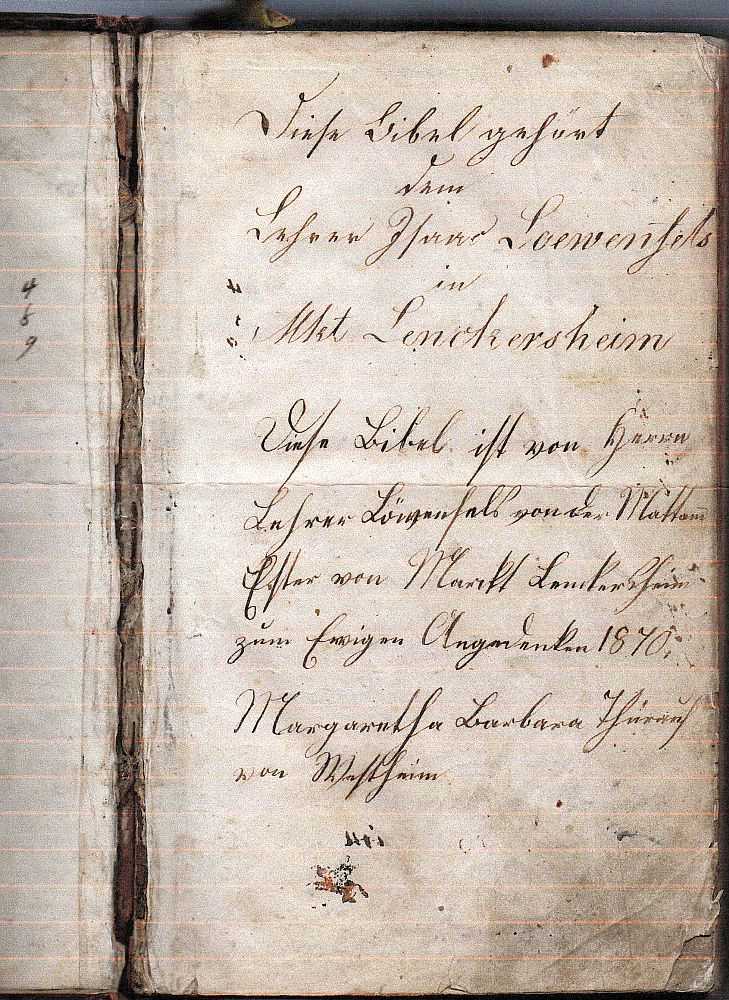 Diese Bibel gehört
dem
Lehrer Isaac Loewenfels
in
Mkt Lenckersheim
Diese Bibel ist von Herrn
Lehrer Löwenfels von der
Ester von Marckt Lenckersheim
zum Ewigen Angedenken 1870.
Margaretha Barbara Thürauf
von Westheim
4
8
9